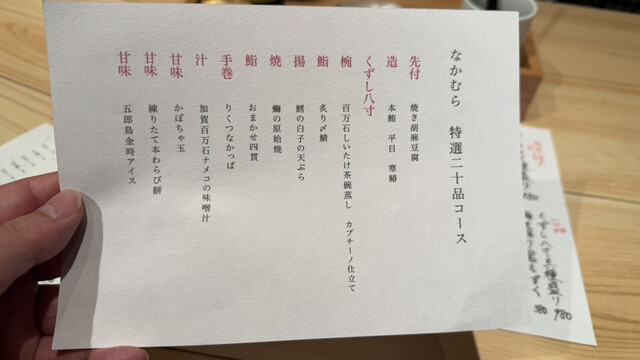 なかむら 特選二十品コース
先付 焼き胡麻豆腐
造 本鮪 平目 寒鰆
くずし八寸
椀 百万石しいたけ茶碗蒸し カプチーノ仕立て
鮨 炙り〆鯖
揚 鱈の白子の天ぷら
焼 鰤の原始焼
鮨 おまかせ四貫
手巻 りくつなかっぱ
汁 加賀百万石ナメコの味噌汁
甘味 かぼちゃ玉
甘味 練りたて本わらび餅
甘味 五郎島金時アイス
くずし八寸三種盛り 980